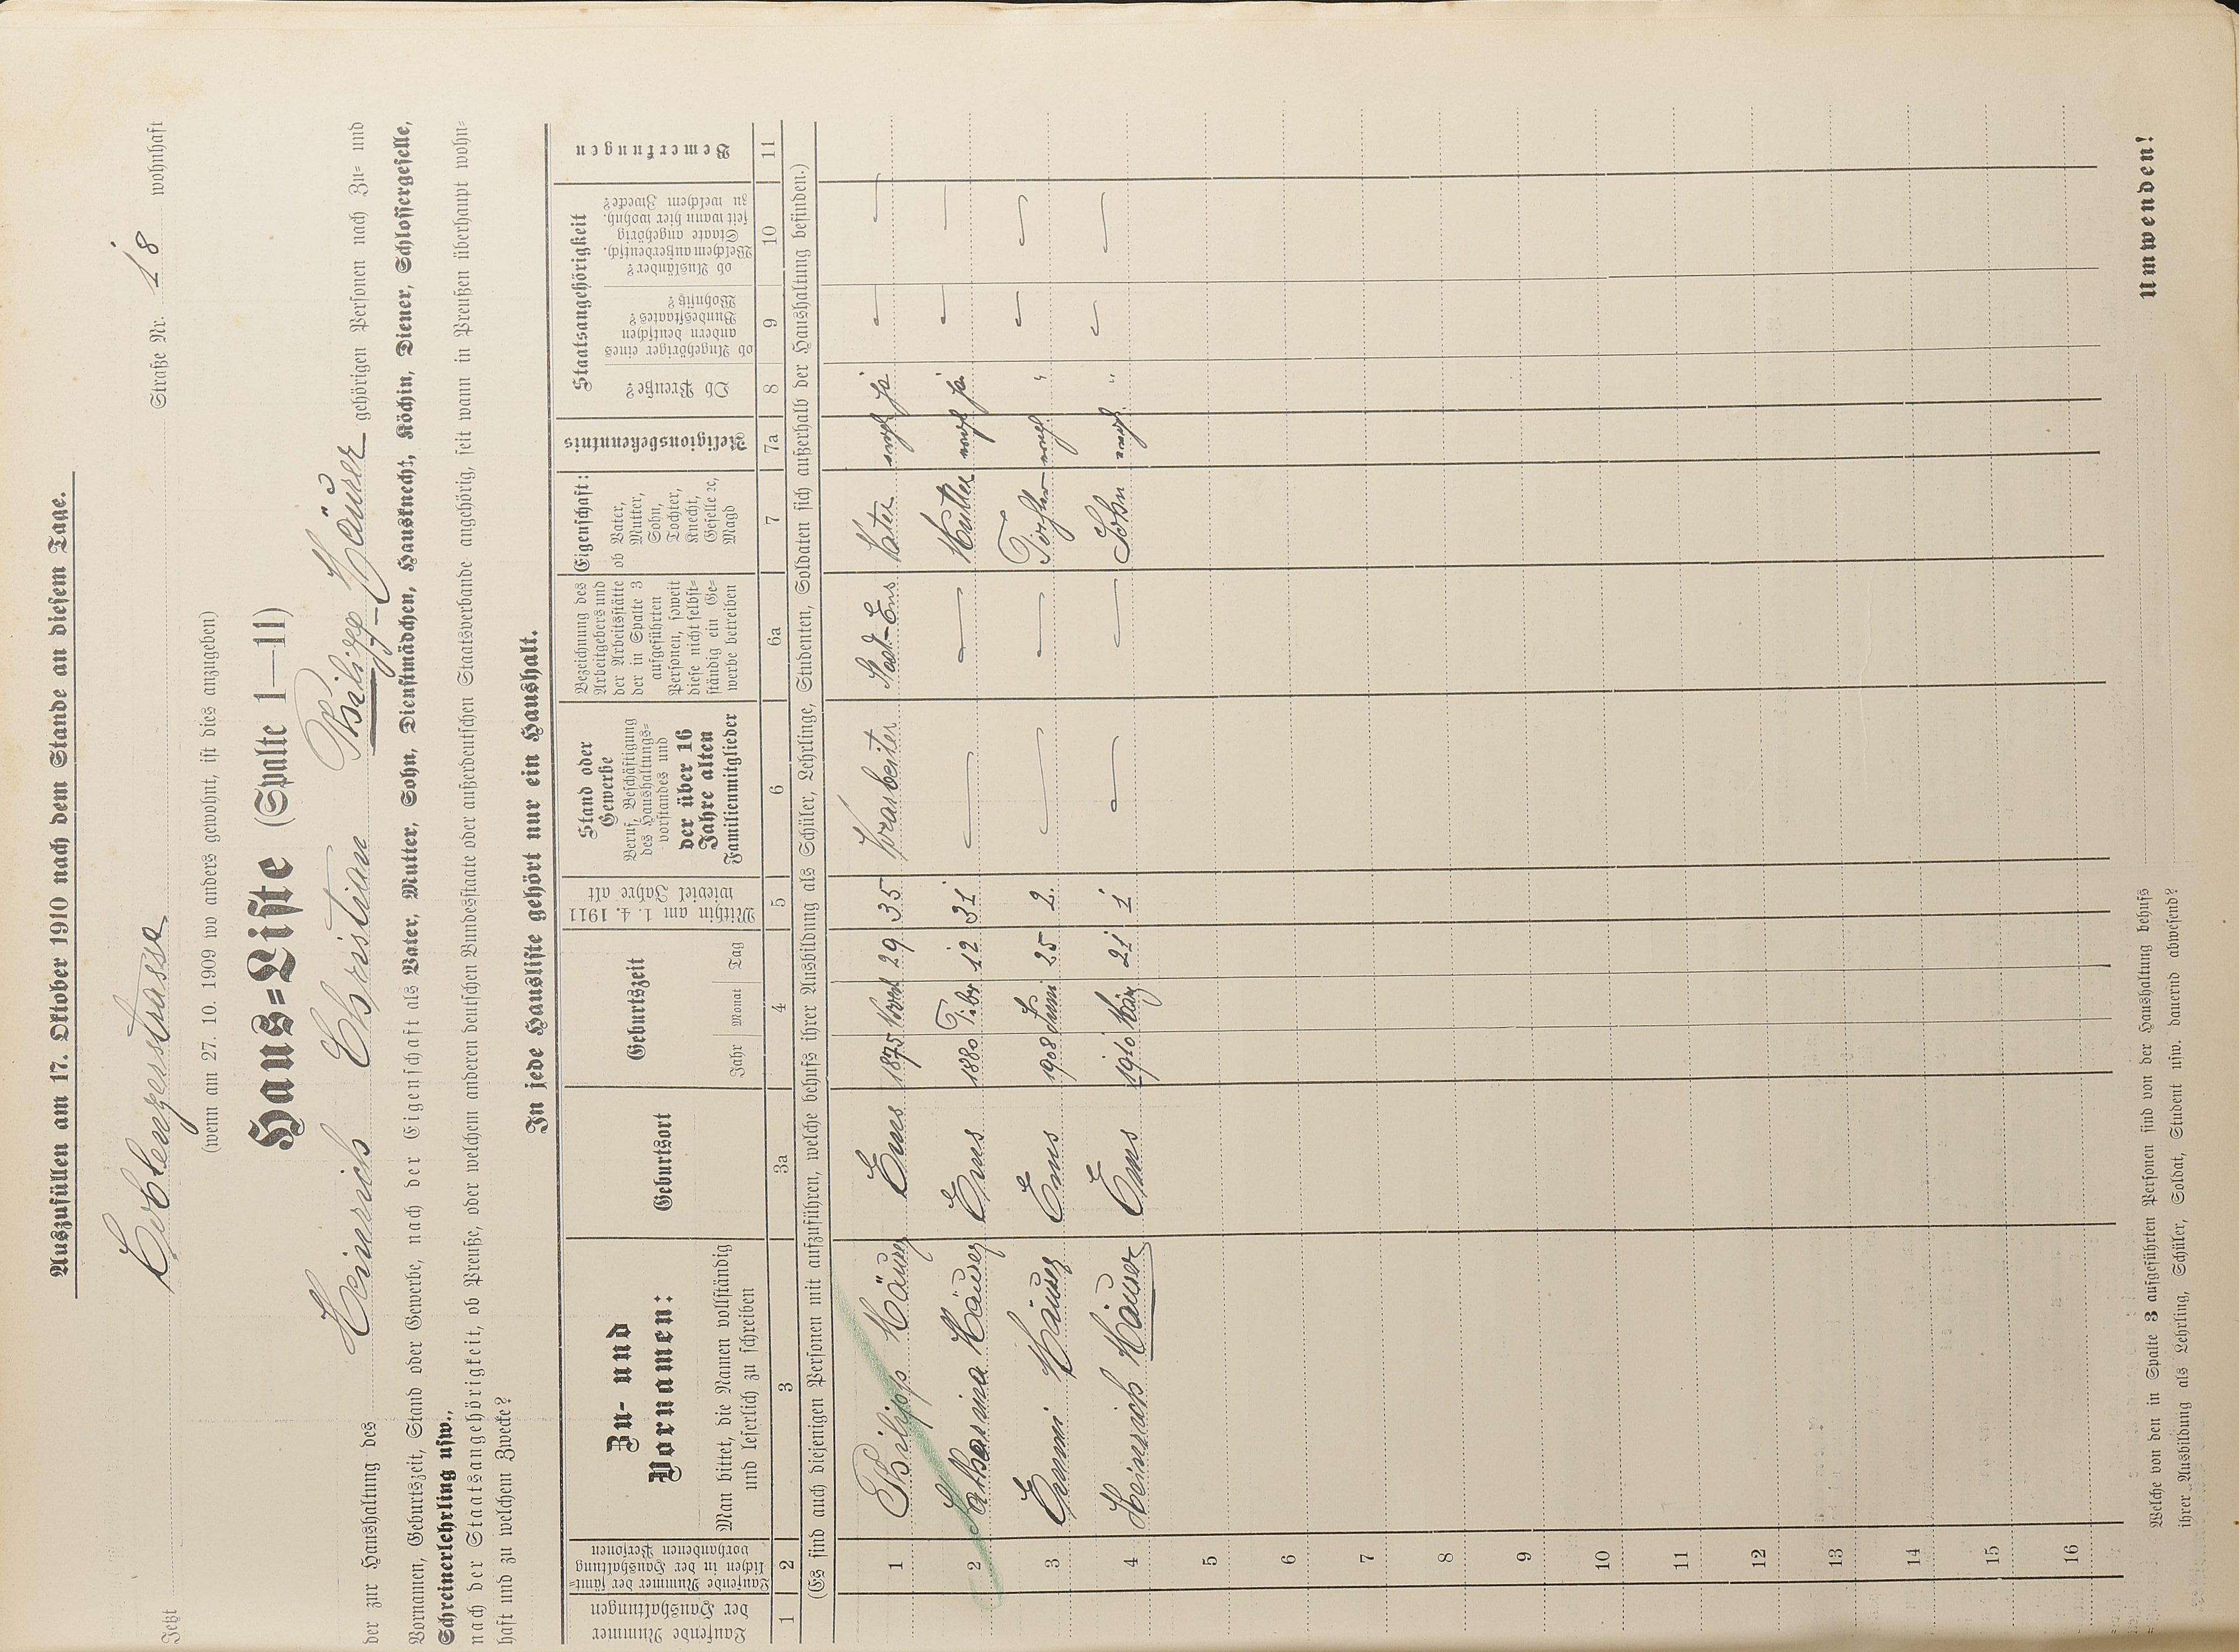 Auszufüllen am 17. Oktober 1910 nach dem Stande an diesem Tage.
Jetzt Coblenzerstrasse Straße Nr. 18 wohnhaft
(wenn am 27. 10. 1909 wo anders gewohnt, ist dies anzugeben)
Haus=Liste (Spalte 1—11)
der zur Haushaltung des Heinrich Christian Philipp Häuser gehörigen Personen nach Zu= und
Vornamen, Geburtszeit, Stand oder Gewerbe, nach der Eigenschaft als Vater, Mutter, Sohn, Dienstmädchen, Hausknecht, Köchin, Diener, Schlossergeselle,
Schreinerlehrling usw.,
nach der Staatsangehörigkeit, ob Preuße, oder welchem anderen deutschen Bundesstaate oder außerdeutschen Staatsverbande angehörig, seit wann in Preußen überhaupt wohn=
haft und zu welchem Zwecke?
In jede Hausliste gehört nur ein Haushalt.
Laufende Nummer der Haushaltungen
Laufende Nummer der sämt=lichen in der Haushaltung vorhandenen Personen
Zu- und Vornamen:
Man bittet, die Namen vollständig und leserlich zu schreiben
Geburtsort
Geburtszeit
Jahr Monat Tag
Mithin am 1. 4. 1911 wieviel Jahre alt
Stand oder Gewerbe
Beruf, Beschäftigung des Haushaltungs=vorstandes und
der über 16 Jahre alten Familienmitglieder
Bezeichnung des Arbeitgebers und der Arbeitsstätte der in Spalte 3 aufgeführten Personen, soweit diese nicht selbst=ständig ein Ge=werbe betreiben
Eigenschaft:
ob Vater, Mutter, Sohn, Tochter, Knecht, Geselle ꝛc, Magd
Religionsbekenntnis
Staatsangehörigkeit
Ob Preuße?
ob Angehöriger eines andern deutschen Bundesstaates? Wohnsitz?
ob Ausländer? Welchem außerdeutsch. Staate angehörig seit wann hier wohnh. zu welchem Zwecke?
Bemerkungen
1 2 3 3a 4 5 6 6a 7 7a 8 9 10 11
(Es sind auch diejenigen Personen mit aufzuführen, welche behufs ihrer Ausbildung als Schüler, Lehrlinge, Studenten, Soldaten sich außerhalb der Haushaltung befinden.)
1 Philipp Häuser Ems 1875 29 35 Vorarbeiter Vater evgl Ja — —
2 Katharina Häuser Ems 1880 12 31 — — Mutter evgl Ja — —
3 Emmi Häuser Ems 1908 Juni 25 2. — — Tochter evgl " — —
4 Heinrich Häuser Ems 1910 März 21 1 — — Sohn evgl. " — —
5
6
7
8
9
10
11
12
13
14
15
16
Welche von den in Spalte 3 aufgeführten Personen sind von der Haushaltung behufs
ihrer Ausbildung als Lehrling, Schüler, Soldat, Student usw. dauernd abwesend?
Umwenden!